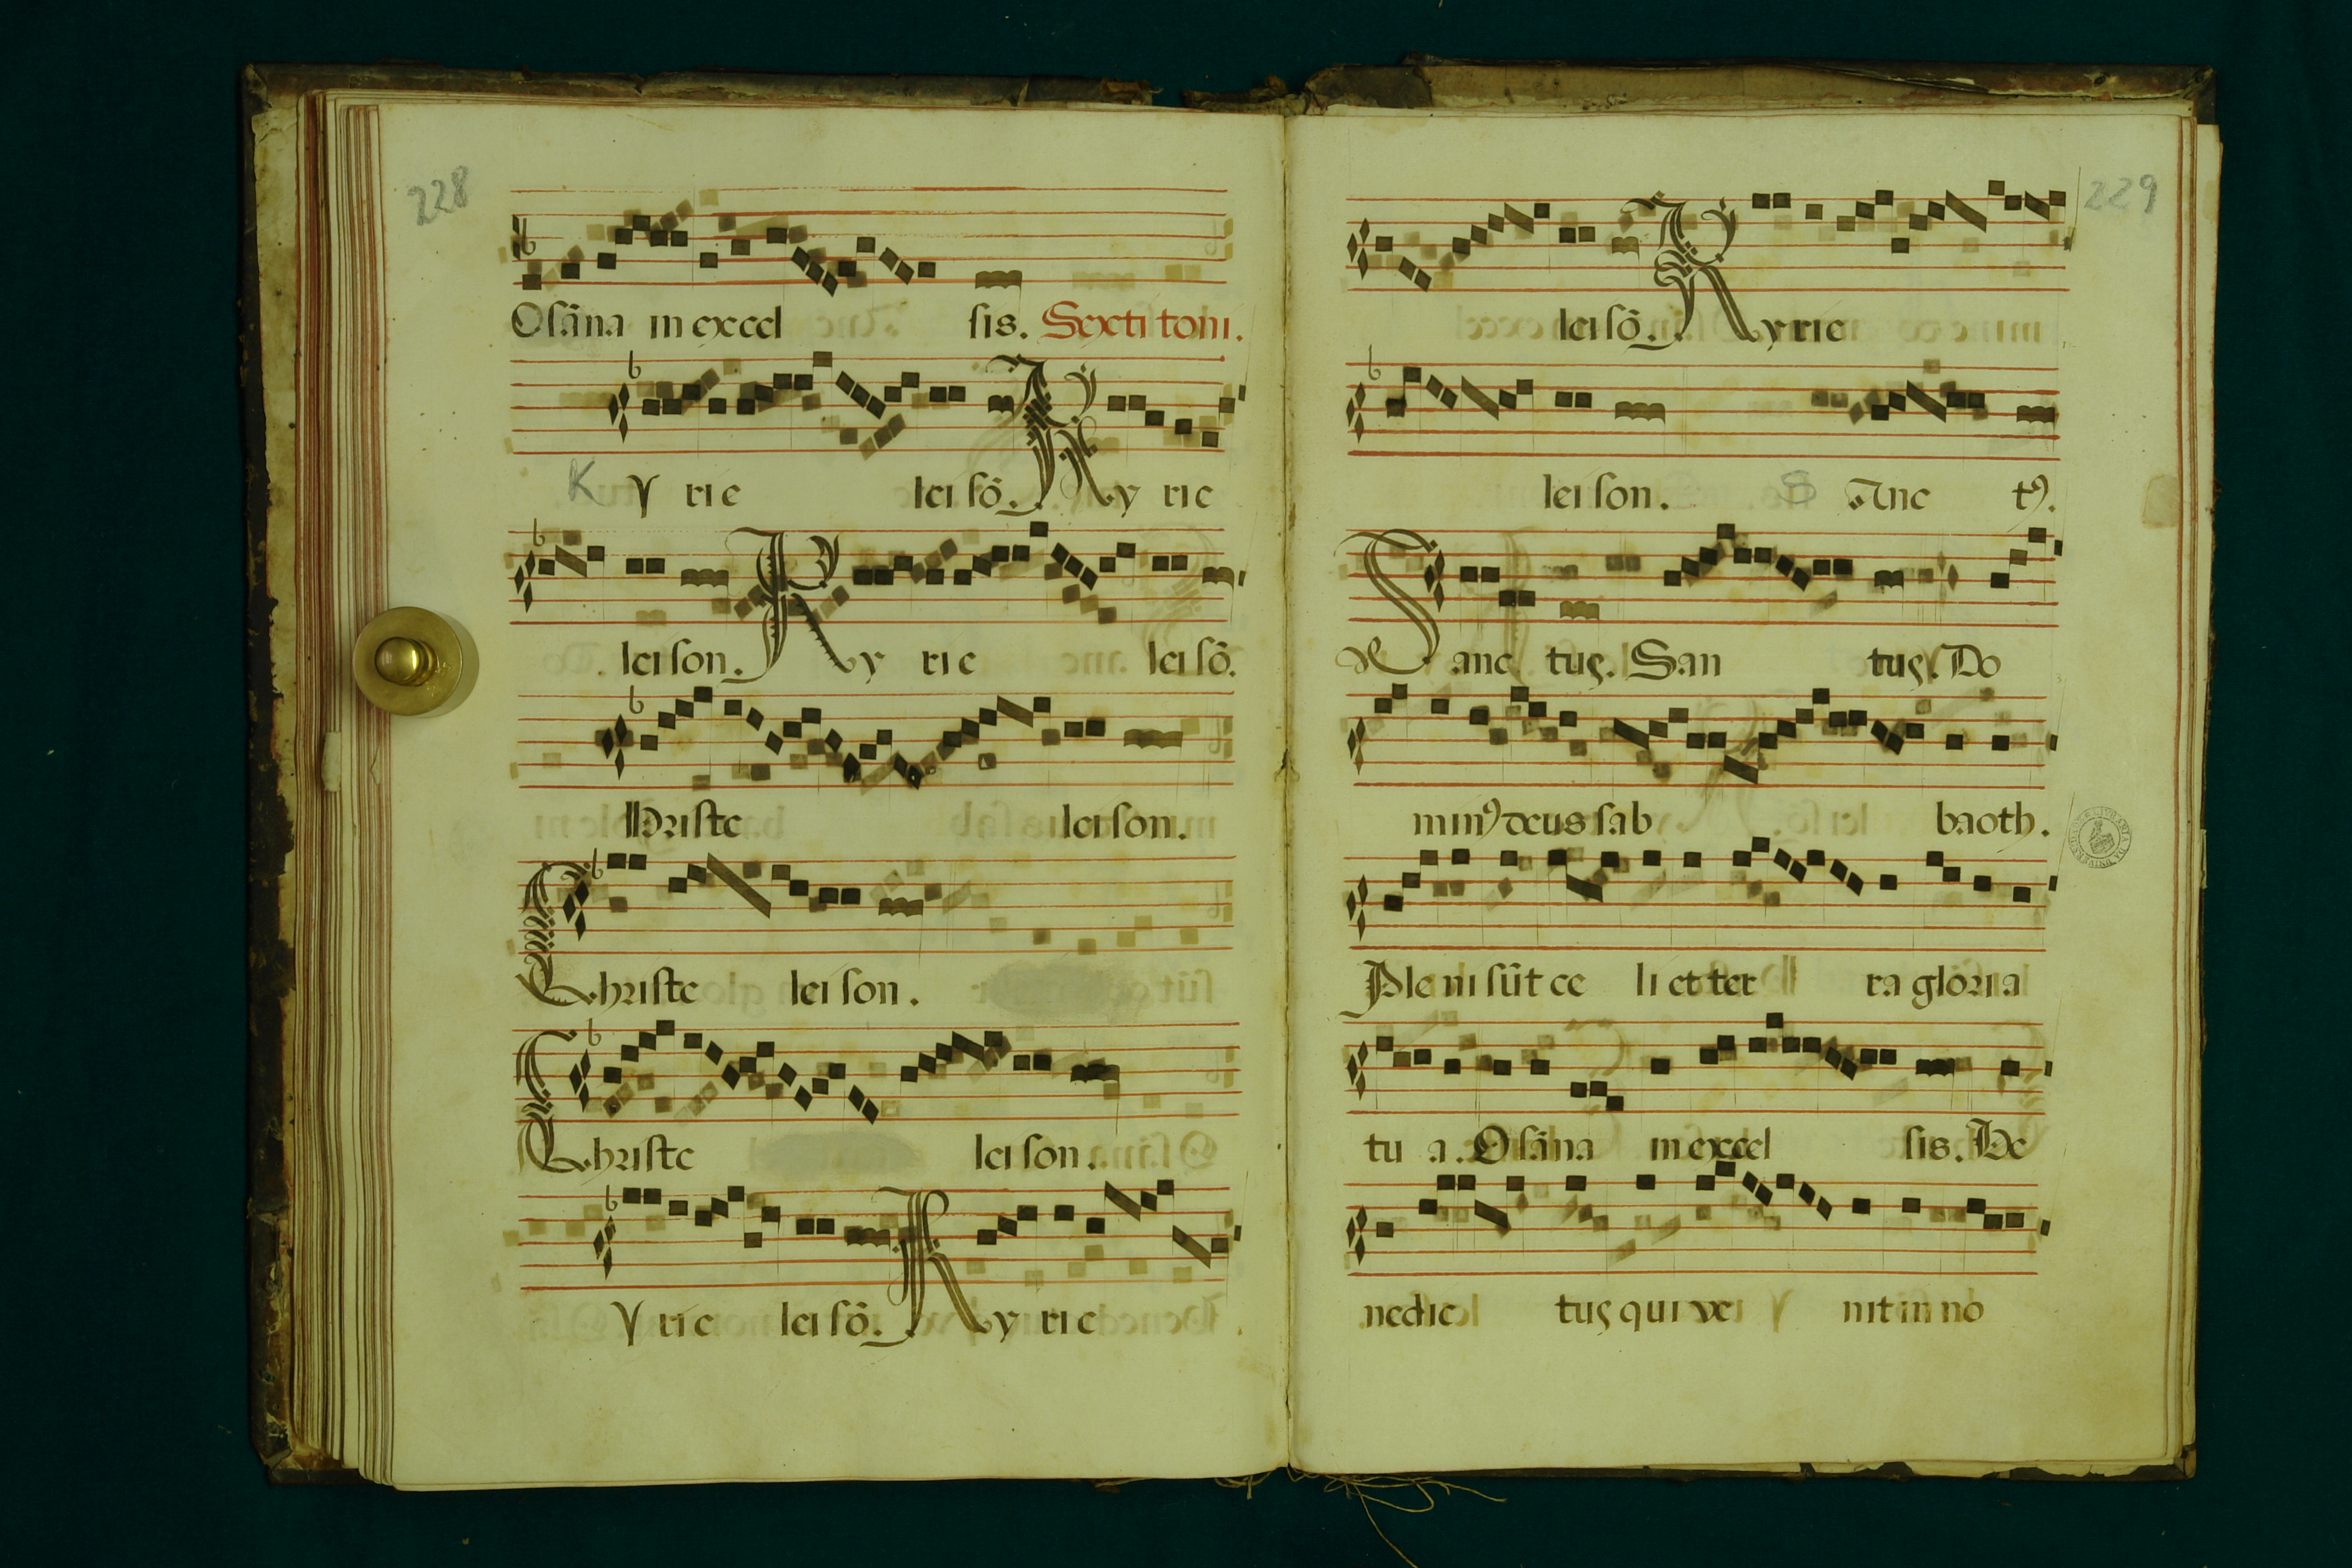 228
Osãna in excel sis. Sexti toni.
K y rie lei sõ. Ky rie
lei son. Ky rie lei sõ.
hriste lei son.
Christe lei son.
Christe lei son.
y rie lei sõ. Ky rie
229
lei sõ. Kyrie
lei son. S Anc tꝰ.
Sanc tus. San tus. Do
minꝰ deus sab baoth.
Ple ni sũt ce li et ter ra gloria
tu a. Osãna in excel sis. Be
nedic tus qui ve nit in no